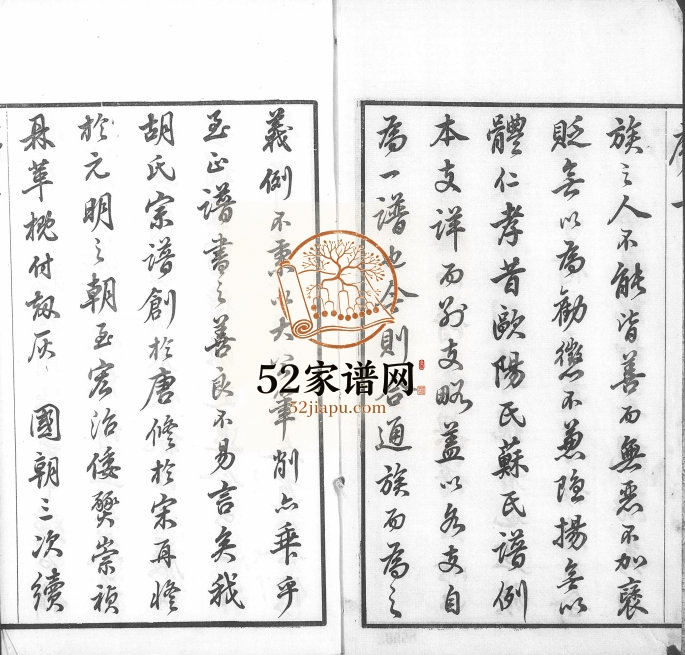 序一
族之人不能皆善而無惡不加褒
貶無以為勸懲不兼隱揚無以
體仁孝昔歐陽氏蘇氏譜例
本支詳而別支略蓋以各支自
為一譜也今則合通族而為之
義例不秉以大公筆削亦乖乎
至正譜書之善良不易言矣我
胡氏宗譜創於唐修於宋再修
於元明之朝至宏治倭燹崇禎
鼎革概付劫灰 國朝三次續
52家谱网
52jiapu.com